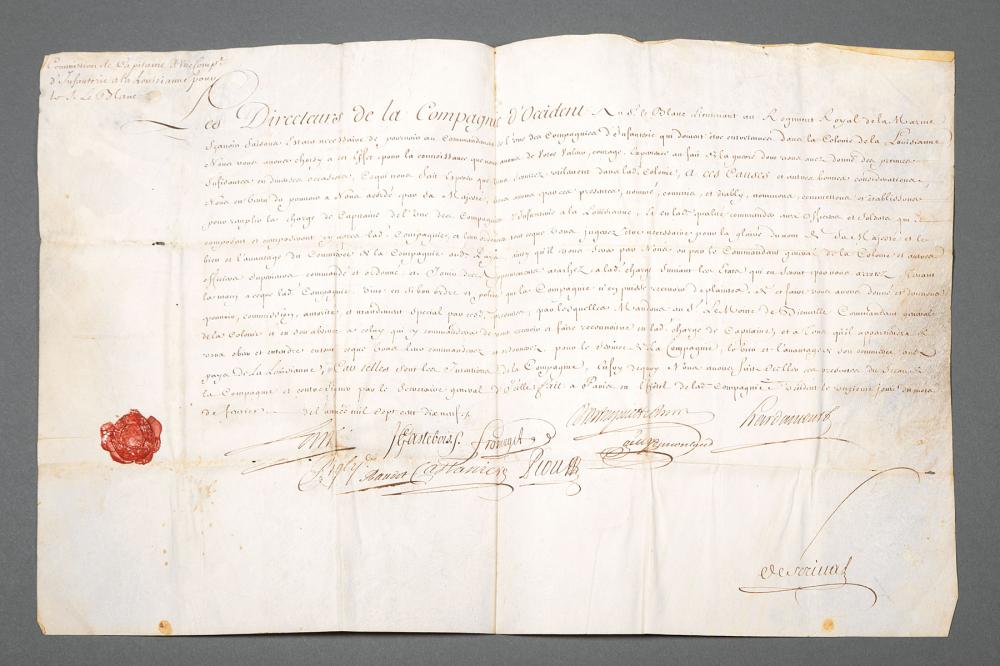 Commission de Capitaine d'Une Comp.e
d'Infanterie a la Louisianne pour
le S. Le Blanc
Les Directeurs de la Compagnie d'Occident Au S.r le Blanc Lieutenant au Regiment Royal de la Marine
Estant necessaire de pourvoir au Commandement de l'une des Compagnies d'Infanterie qui doivent être entretenues dans la Colonie de la Louisianne
Nous vous avons choisy a cet effet pour la connoissance que nous avons de Votre Valeur, courage, Experience au fait de la guerre dont vous avez donné des preuves
Suffisantes en diverses occasions, Ce qui nous fait Esperer que Vous servirez utilement dans lad. Colonie, A ces Causes et autres bonnes considerations
Nous en Vertu du pouvoir a Nous accordé par Sa Majesté, Vous avons par ces presentes, nommé, commis, et étably, nommons, commettons et établissons
pour remplir la charge de Capitaine de l'une des Compagnies d'Infanterie a la Louisianne, Et en lad. qualité commander aux Officiers et Soldats qui
composent et composeront cy après lad. Compagnie, et leur ordonner tout ce que Vous jugerez être necessaire pour la gloire du nom de Sa Majesté et le
bien et l'avantage du Commerce de la Compagnie aud. Pays, ainsy qu'il vous sera par Nous ou par le Commandant general de la Colonie et autres
officiers Superieurs commandé et ordonné, et Jouir des appointemens attachez a lad. charge Suivant les Etats qui en seront par nous arretez Tenant
la main a ce que lad. Compagnie Vive en si bon ordre et police que la Compagnie n'en puisse recevoir de plaintes. De ce faire vous avons donné et donnons
pouvoir, commission, autorité, et mandement special par ces presentes, par lesquelles Mandons au S. Le Moine de Bienville Commandant general
de la Colonie et en son absence a celuy qui y commandera de vous recevoir et faire reconnoitre en lad. charge de Capitaine, et a Tous qu'il appartiendra de
vous obeir et entendre en tout ce que Vous leur commanderez et ordonnerez, pour le service de la Compagnie, le bien et l'avantage de son commerce aud.
pays de la Louisianne, Car telles sont les Intentions de la Compagnie, En foy de quoy Nous avons fait Sceller ces presentes du Sceau de
la Compagnie et contresigner par le Secretaire general d'Icelle fait a Paris en l'hôtel de lad. Compagnie le Vingtieme jour du mois
de fevrier de l'année mil Sept cent dix neuf
JCastebois
Raudot Castanier Piou